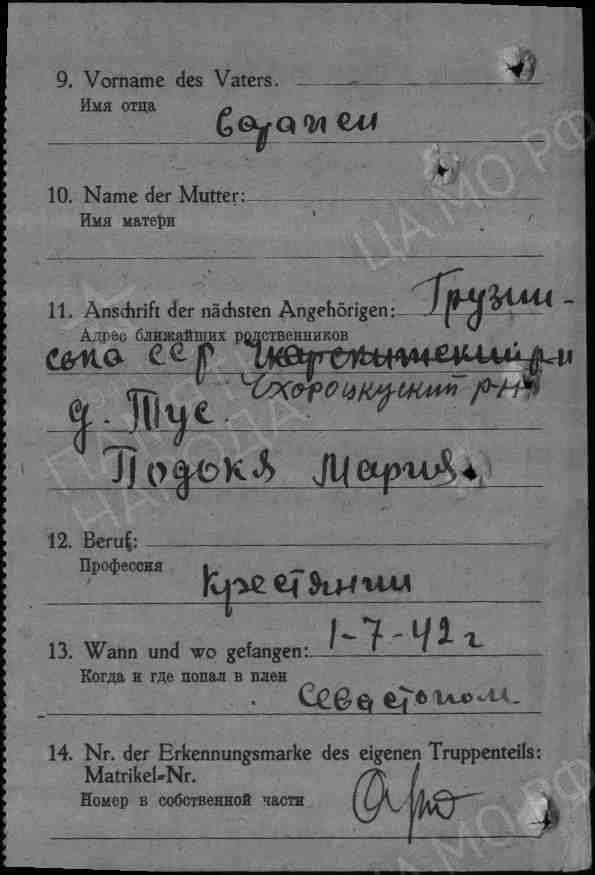 9. Vorname des Vaters.
Имя отца
10. Name der Mutter:
Имя матери
11. Anschrift der nächsten Angehörigen: Грузин-
Адрес ближайших родственников
ССР р-н
Чхороцкуский р-н
д. Тус
Подокя Мария
12. Beruf:
Профессия
Крестянин
13. Wann und wo gefangen: 1-7-42 г
Когда и где попал в плен
Севастопом
14. Nr. der Erkennungsmarke des eigenen Truppenteils:
Matrikel-Nr.
Номер в собственной части
ЦА МО РФ
ПАМЯТЬ
НАРОДА
ЦА МО РФ